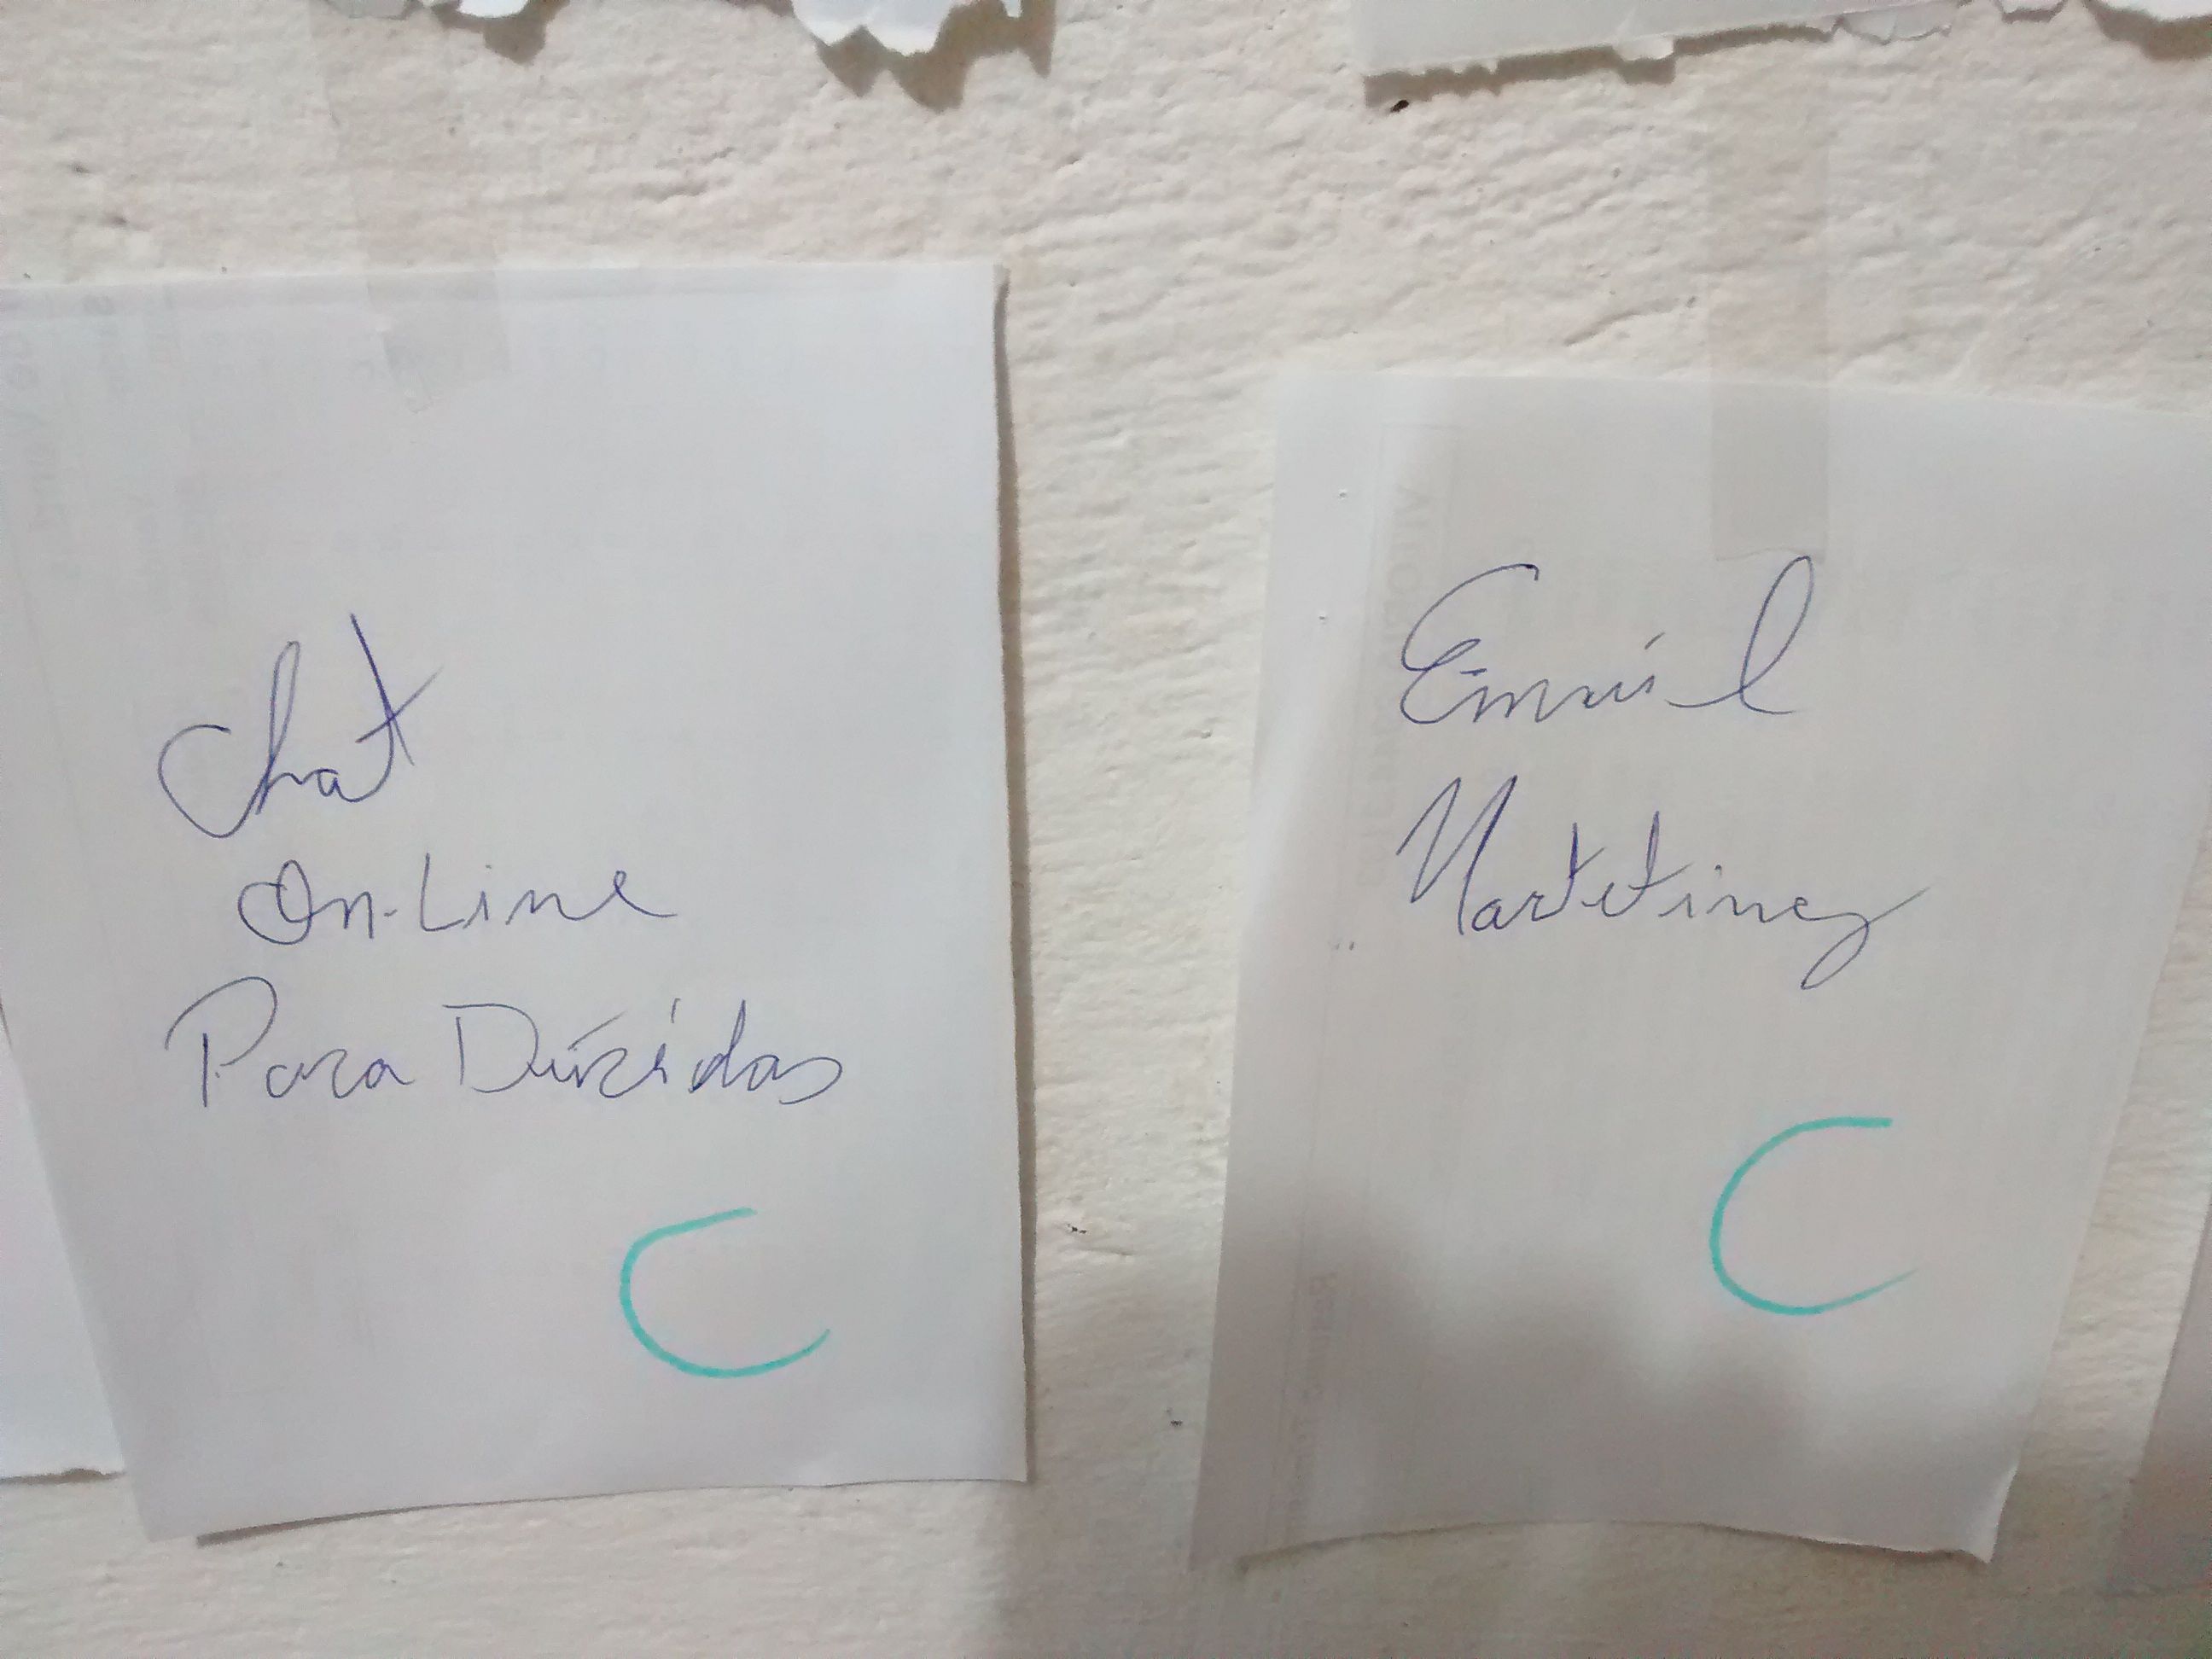 Chat
On-Line
Para Dúvidas
C
Email
Marketing
C